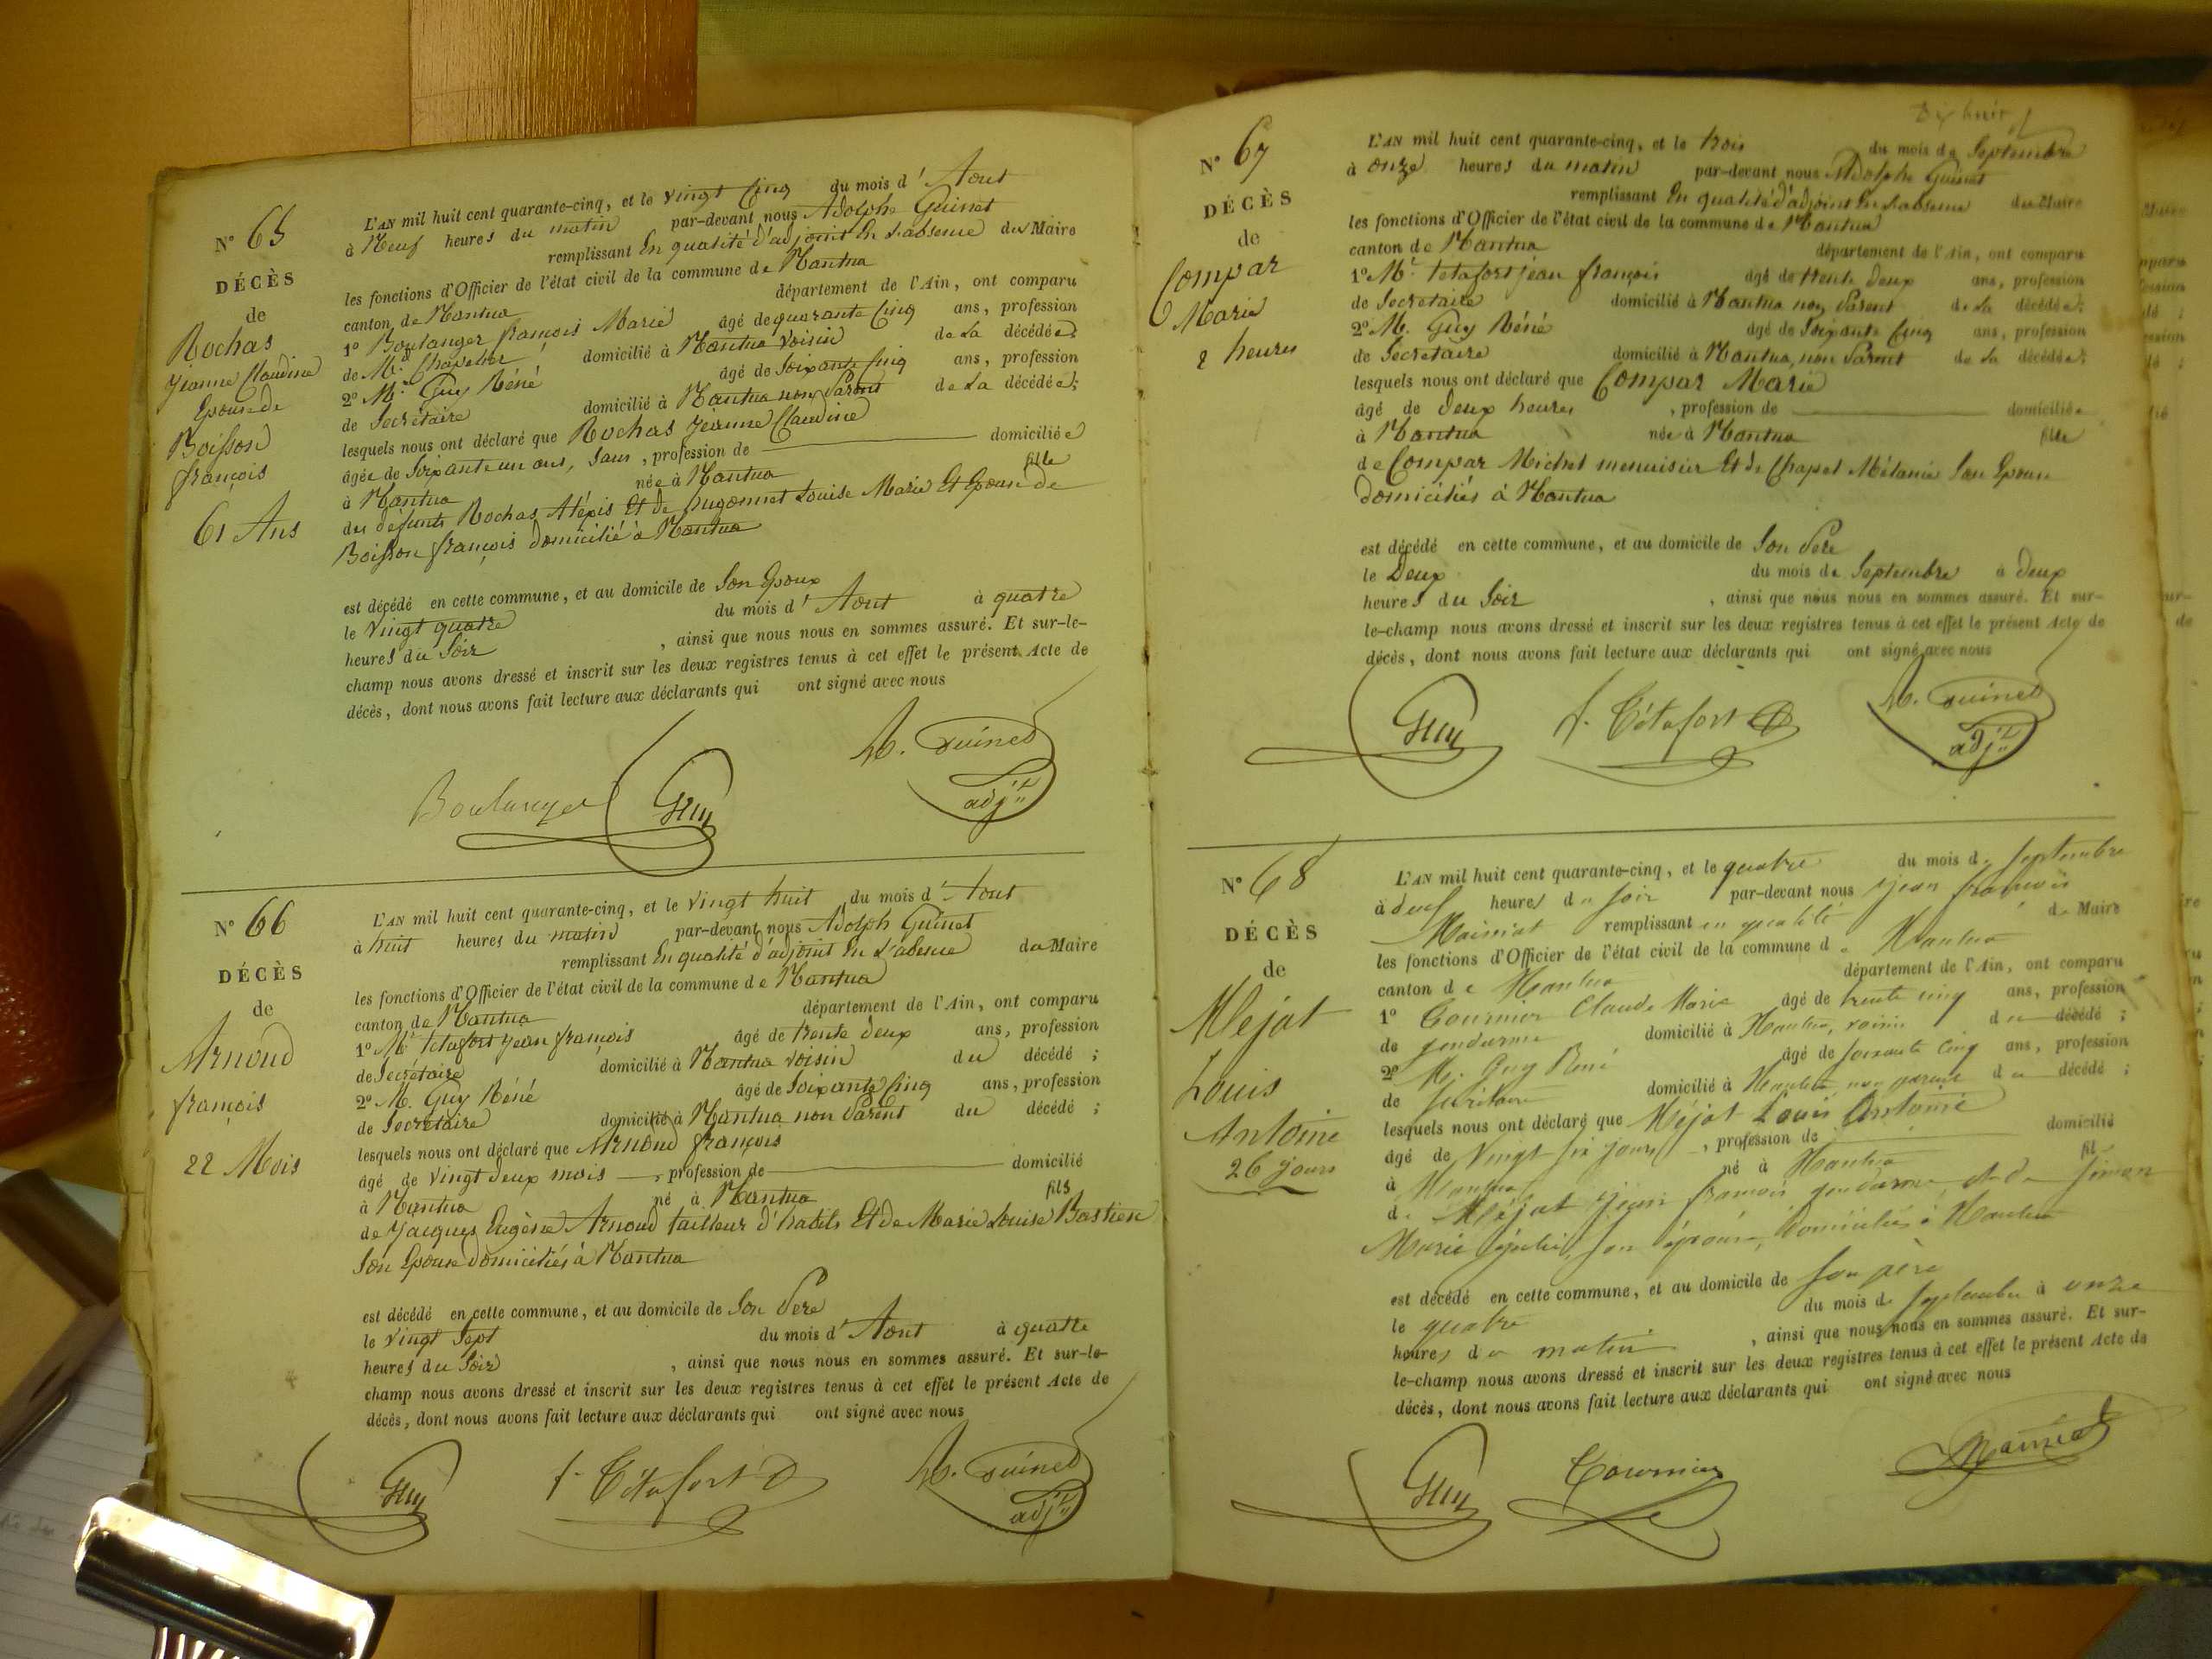 N° 65
DÉCÈS
de
Rochas
Jeanne Claudine
Epouse de
Boisson
françois
61 Ans
L'AN mil huit cent quarante-cinq, et le vingt Cinq du mois d'Aout
à Neuf heures du matin par-devant nous Adolphe Guinet
remplissant En qualité d'adjoint En l'absence du Maire
les fonctions d'Officier de l'état civil de la commune de Nantua
canton de Nantua département de l'Ain, ont comparu
1° Boulanger françois Marie âgé de quarante Cinq ans, profession
de Md. Chapelier domicilié à Nantua voisin de la décédée;
2° M. Guy Réné âgé de Soixante Cinq ans, profession
de Secrétaire domicilié à Nantua non Parent de la décédée;
lesquels nous ont déclaré que Rochas Jeanne Claudine
âgée de Soixante un ans, Sans, profession de domiciliée
à Nantua née à Nantua fille
des défunts Rochas Aléxis Et de hugonnet Louise Marie Et Epouse de
Boisson françois domicilié à Nantua
est décédé en cette commune, et au domicile de Son Epoux
le vingt quatre du mois d'Aout à quatre
heures du Soir, ainsi que nous nous en sommes assuré. Et sur-le-
champ nous avons dressé et inscrit sur les deux registres tenus à cet effet le présent Acte de
décès, dont nous avons fait lecture aux déclarants qui ont signé avec nous
Boulanger Guy A. Guinet
adjt
N° 66
DÉCÈS
de
Arnoud
françois
22 Mois
L'AN mil huit cent quarante-cinq, et le vingt huit du mois d'Aout
à huit heures du matin par-devant nous Adolph Guinet
remplissant En qualité d'adjoint En l'absence du Maire
les fonctions d'Officier de l'état civil de la commune de Nantua
canton de Nantua département de l'Ain, ont comparu
1° Mr tétafort jean françois âgé de trente deux ans, profession
de Secrétaire domicilié à Nantua voisin du décédé;
2° M. Guy Réné âgé de Soixante Cinq ans, profession
de Secrétaire domicilié à Nantua non Parent du décédé;
lesquels nous ont déclaré que Arnoud françois
âgé de vingt deux mois, profession de domicilié
à Nantua né à Nantua fils
de Jacques Eugène Arnoud tailleur d'habits Et de Marie Louise Bastien
Son Epouse domiciliés à Nantua
est décédé en cette commune, et au domicile de Son Pere
le vingt Sept du mois d'Aout à quatre
heures du Soir, ainsi que nous nous en sommes assuré. Et sur-le-
champ nous avons dressé et inscrit sur les deux registres tenus à cet effet le présent Acte de
décès, dont nous avons fait lecture aux déclarants qui ont signé avec nous
Guy f. Tétafort A. Guinet
adjt
Dix huit
N° 67
DÉCÈS
de
Compar
Marie
2 heures
L'AN mil huit cent quarante-cinq, et le trois du mois de Septembre
à onze heures du matin par-devant nous Adolphe Guinet
remplissant En qualité d'adjoint En l'absence du Maire
les fonctions d'Officier de l'état civil de la commune de Nantua
canton de Nantua département de l'Ain, ont comparu
1° Mr. tétafort jean françois âgé de trente deux ans, profession
de Secrétaire domicilié à Nantua non Parent de la décédée;
2° M. Guy Réné âgé de Soixante Cinq ans, profession
de Secrétaire domicilié à Nantua, non Parent de la décédée;
lesquels nous ont déclaré que Compar Marie
âgé de deux heures, profession de domiciliée
à Nantua née à Nantua fille
de Compar Michel menuisier Et de Chapel Mélanie Son Epouse
domiciliés à Nantua
est décédé en cette commune, et au domicile de Son Pere
le Deux du mois de Septembre à deux
heures du Soir, ainsi que nous nous en sommes assuré. Et sur-
le-champ nous avons dressé et inscrit sur les deux registres tenus à cet effet le présent Acte de
décès, dont nous avons fait lecture aux déclarants qui ont signé avec nous
Guy f. Tétafort A. Guinet
adjt
N° 68
DÉCÈS
de
Méjat
Louis
Antoine
26 jours
L'AN mil huit cent quarante-cinq, et le quatre du mois de Septembre
à deux heures du soir par-devant nous jean françois
remplissant en qualité de Maire
les fonctions d'Officier de l'état civil de la commune de Nantua
canton de Nantua département de l'Ain, ont comparu
1° Cournier Claude Marie âgé de trente cinq ans, profession
de gendarme domicilié à Nantua, voisin du décédé;
2° M. Guy René âgé de soixante cinq ans, profession
de secrétaire domicilié à Nantua non parent du décédé;
lesquels nous ont déclaré que Méjat Louis Antoine
âgé de vingt six jours, profession de domicilié
à Nantua né à Nantua fil
de Méjat jean françois gendarme et de Simon
Marie Julie, son épouse, domiciliés à Nantua
est décédé en cette commune, et au domicile de son père
le quatre du mois de septembre à onze
heures du matin, ainsi que nous nous en sommes assuré. Et sur-
le-champ nous avons dressé et inscrit sur les deux registres tenus à cet effet le présent Acte de
décès, dont nous avons fait lecture aux déclarants qui ont signé avec nous
Guy Cournier